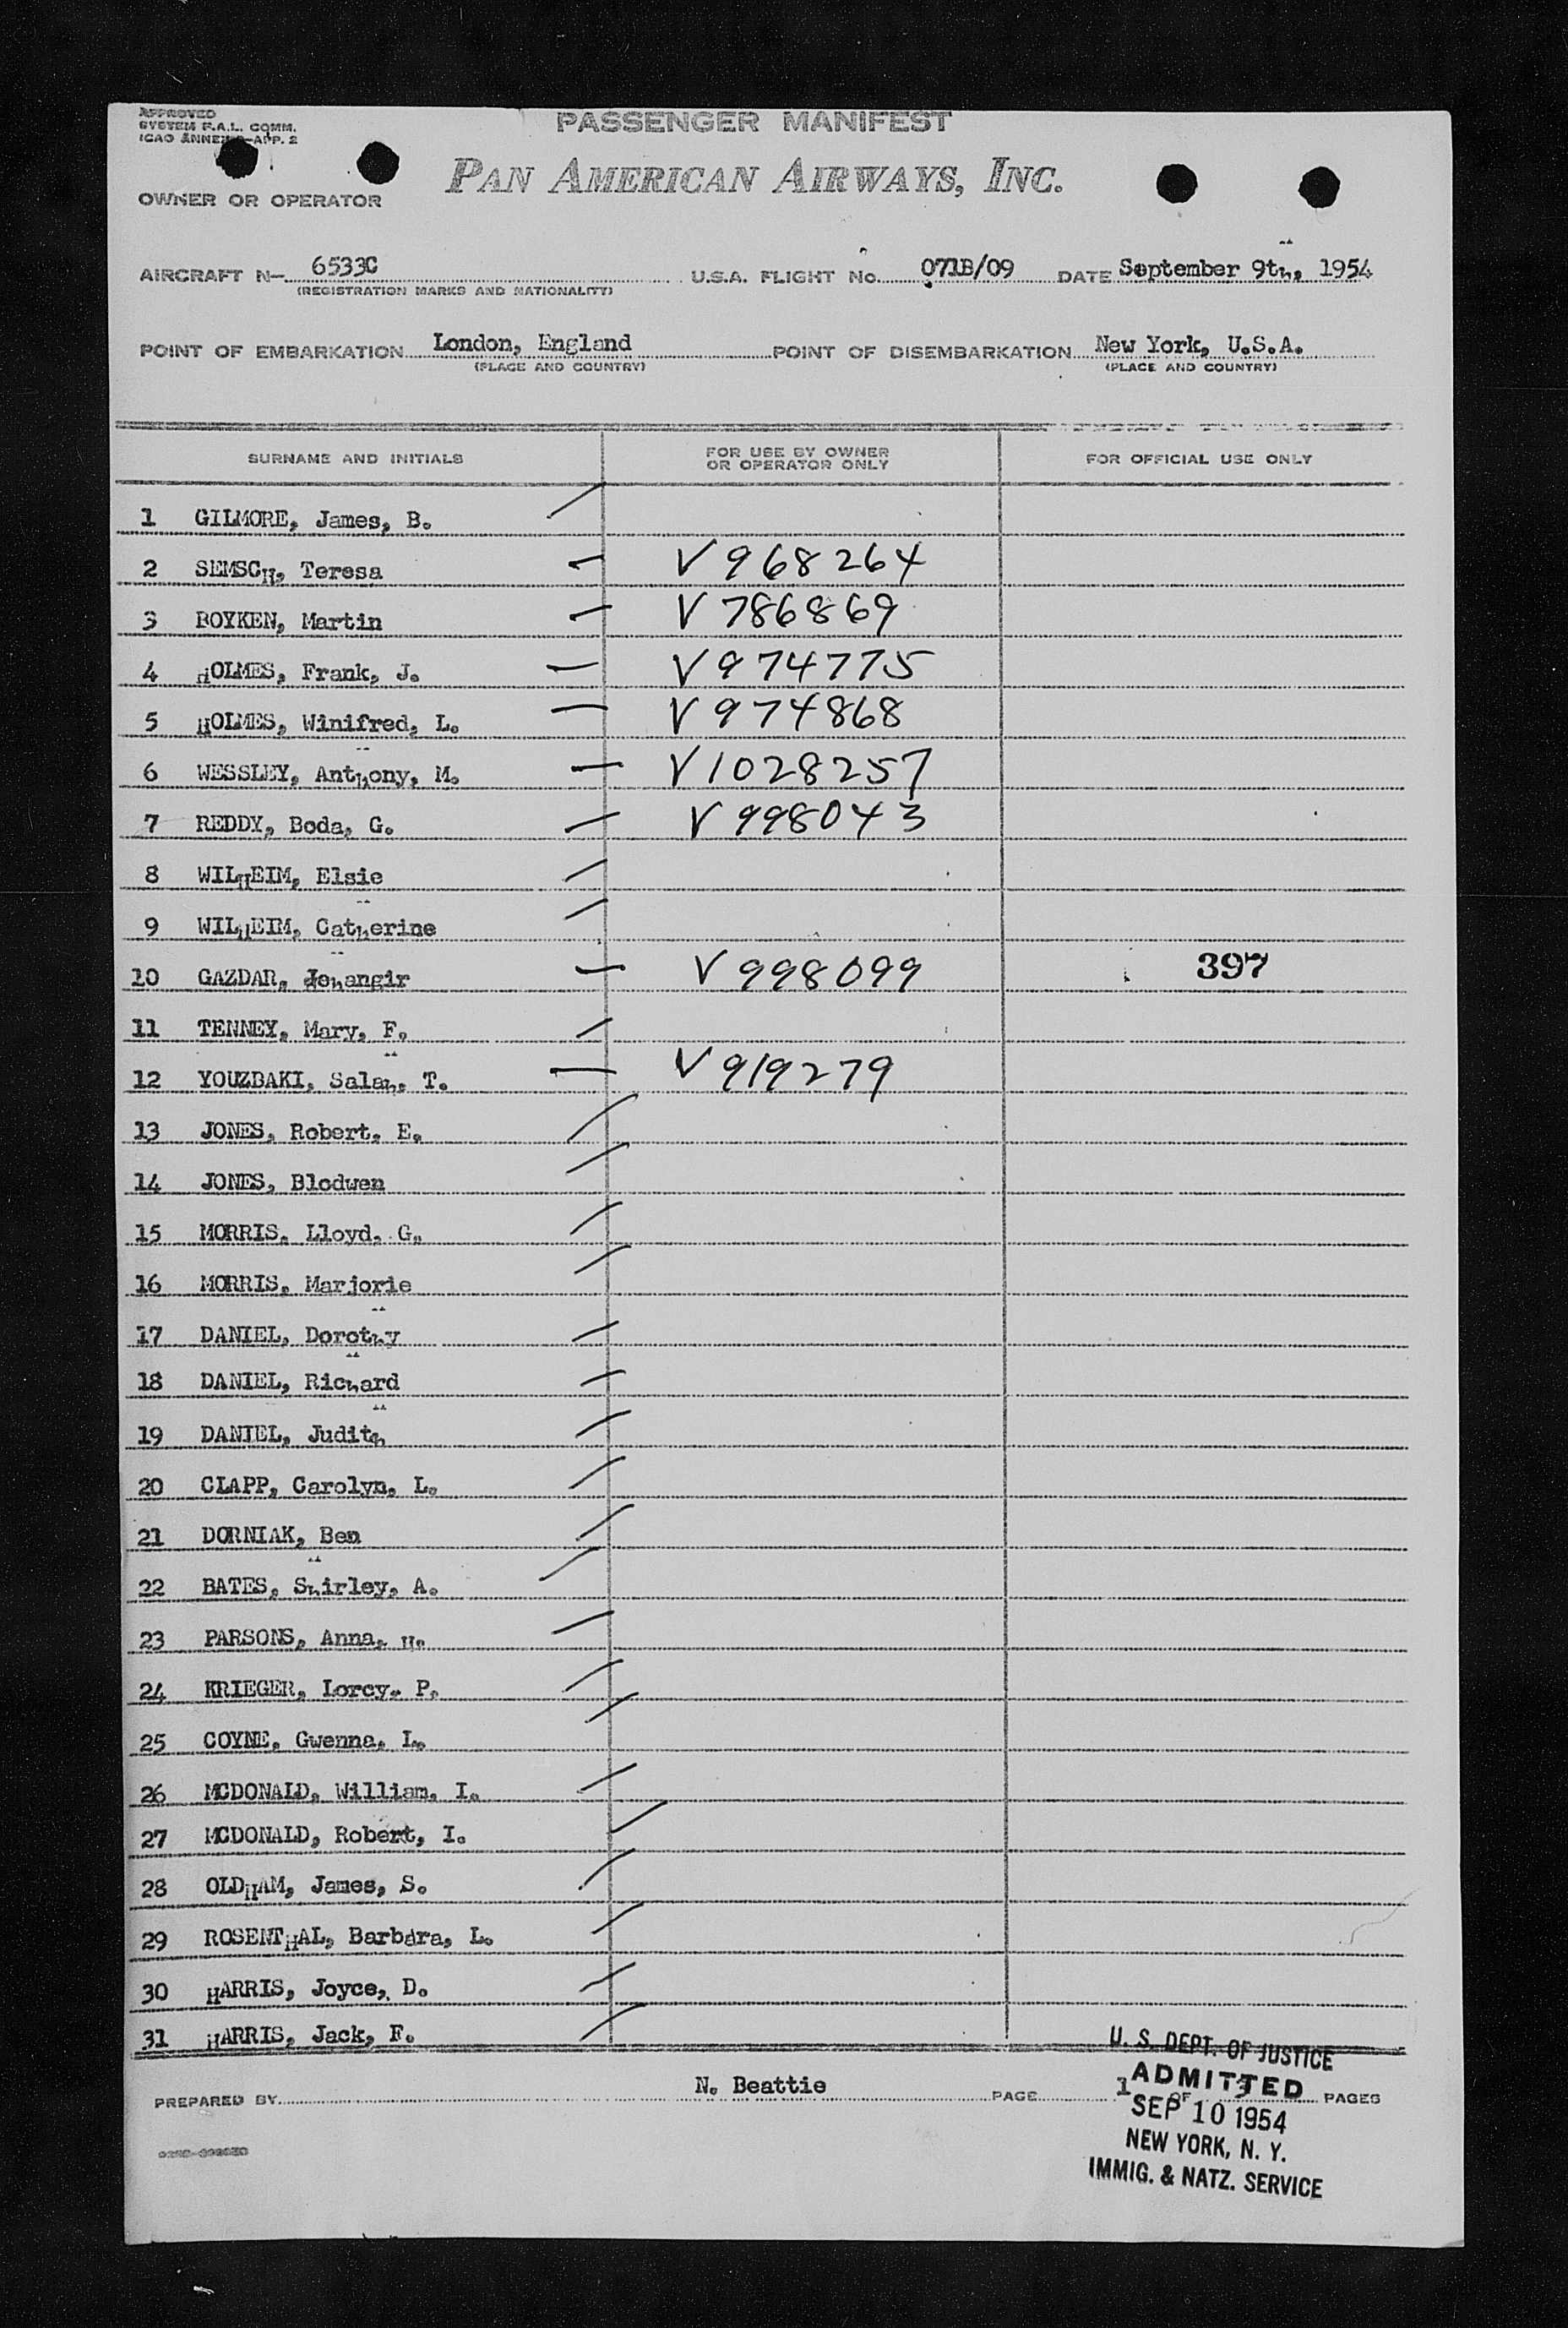 APPROVED
SYSTEM F.A.L. COMM.
ICAO ANNEX 9-APP. 2
PASSENGER MANIFEST
PAN AMERICAN AIRWAYS, INC.
OWNER OR OPERATOR
AIRCRAFT N— 6533C U.S.A. FLIGHT No. 071B/09 DATE September 9th, 1954
(REGISTRATION MARKS AND NATIONALITY)
POINT OF EMBARKATION London, England POINT OF DISEMBARKATION New York, U.S.A.
(PLACE AND COUNTRY) (PLACE AND COUNTRY)
SURNAME AND INITIALS FOR USE BY OWNER OR OPERATOR ONLY FOR OFFICIAL USE ONLY
1 GILMORE, James, B.
2 SEMSCH, Teresa V 968264
3 BOYKEN, Martin V 786869
4 HOLMES, Frank, J. V 974775
5 HOLMES, Winifred, L. V 974868
6 WESSLEY, Anthony, M. V 1028257
7 REDDY, Boda, G. V 998043
8 WILHEIM, Elsie
9 WILHEIM, Catherine
10 GAZDAR, Jehangir V 998099 397
11 TENNEY, Mary, F.
12 YOUZBAKI, Salah, T. V 919279
13 JONES, Robert, E.
14 JONES, Blodwen
15 MORRIS, Lloyd, G.
16 MORRIS, Marjorie
17 DANIEL, Dorothy
18 DANIEL, Richard
19 DANIEL, Judith
20 CLAPP, Carolyn, L.
21 DORNIAK, Ben
22 BATES, Shirley, A.
23 PARSONS, Anna, H.
24 KRIEGER, Lorcy, P.
25 COYNE, Gwenna, L.
26 MCDONALD, William, I.
27 MCDONALD, Robert, I.
28 OLDHAM, James, S.
29 ROSENTHAL, Barbara, L.
30 HARRIS, Joyce, D.
31 HARRIS, Jack, F.
PREPARED BY N. Beattie PAGE 1 OF 3 PAGES
U. S. DEPT. OF JUSTICE
ADMITTED
SEP 10 1954
NEW YORK, N. Y.
IMMIG. & NATZ. SERVICE